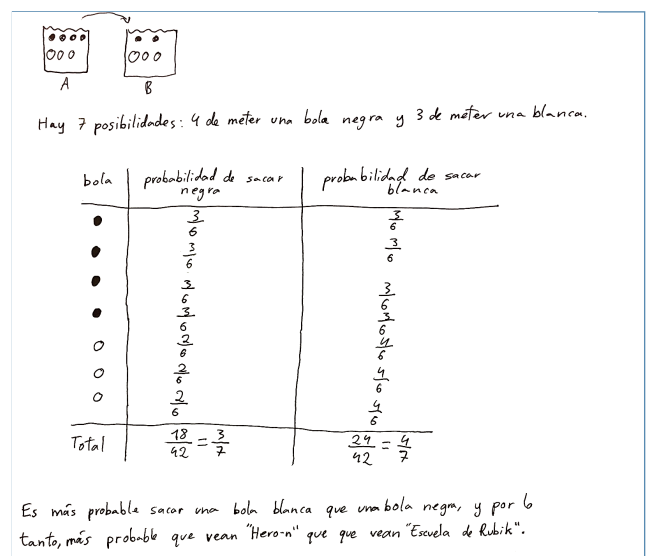 A B
Hay 7 posibilidades: 4 de meter una bola negra y 3 de meter una blanca.
bola | probabilidad de sacar negra | probabilidad de sacar blanca
● | 3/6 | 3/6
● | 3/6 | 3/6
● | 3/6 | 3/6
● | 3/6 | 3/6
○ | 2/6 | 4/6
○ | 2/6 | 4/6
○ | 2/6 | 4/6
Total | 18/42 = 3/7 | 24/42 = 4/7
Es más probable sacar una bola blanca que una bola negra, y por lo
tanto, más probable que vean "Hero-n" que que vean "Escuela de Rubik".